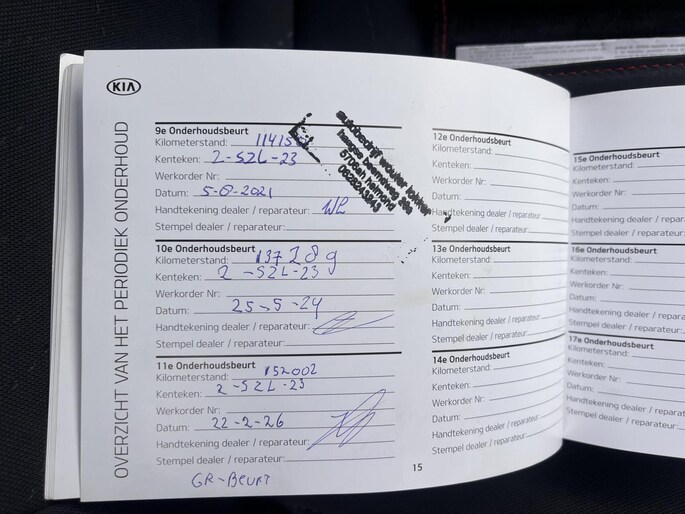 KIA
OVERZICHT VAN HET PERIODIEK ONDERHOUD
9e Onderhoudsbeurt
Kilometerstand:
Kenteken: 2-SZL-23
Werkorder Nr:
Datum: 5-8-2021
Handtekening dealer / reparateur:
Stempel dealer / reparateur:
autobedrijf wouter
5706eh helmond
0628243243
10e Onderhoudsbeurt
Kilometerstand: 137289
Kenteken: 2-SZL-23
Werkorder Nr:
Datum: 25-5-24
Handtekening dealer / reparateur:
Stempel dealer / reparateur:
11e Onderhoudsbeurt
Kilometerstand: 152002
Kenteken: 2-SZL-23
Werkorder Nr:
Datum: 22-2-26
Handtekening dealer / reparateur:
Stempel dealer / reparateur:
GR-BEURT
12e Onderhoudsbeurt
Kilometerstand:
Kenteken:
Werkorder Nr:
Datum:
Handtekening dealer / reparateur
Stempel dealer / reparateur:
13e Onderhoudsbeurt
Kilometerstand:
Kenteken:
Werkorder Nr:
Datum:
Handtekening dealer / reparateur:
Stempel dealer / reparateur:
14e Onderhoudsbeurt
Kilometerstand:
Kenteken:
Werkorder Nr:
Datum:
Handtekening dealer / reparateur:
Stempel dealer / reparateur:
15
15e Onderhoudsbeurt
Kilometerstand:
Kenteken:
Werkorder Nr:
Datum:
Handtekening dealer / repara
Stempel dealer / reparateur:
16e Onderhoudsbeurt
Kilometerstand:
Kenteken:
Werkorder Nr:
Datum:
Handtekening dealer / repar
Stempel dealer / reparateur:
17e Onderhoudsbeurt
Kilometerstand:
Kenteken:
Werkorder Nr:
Datum:
Handtekening dealer / rep
Stempel dealer / reparat